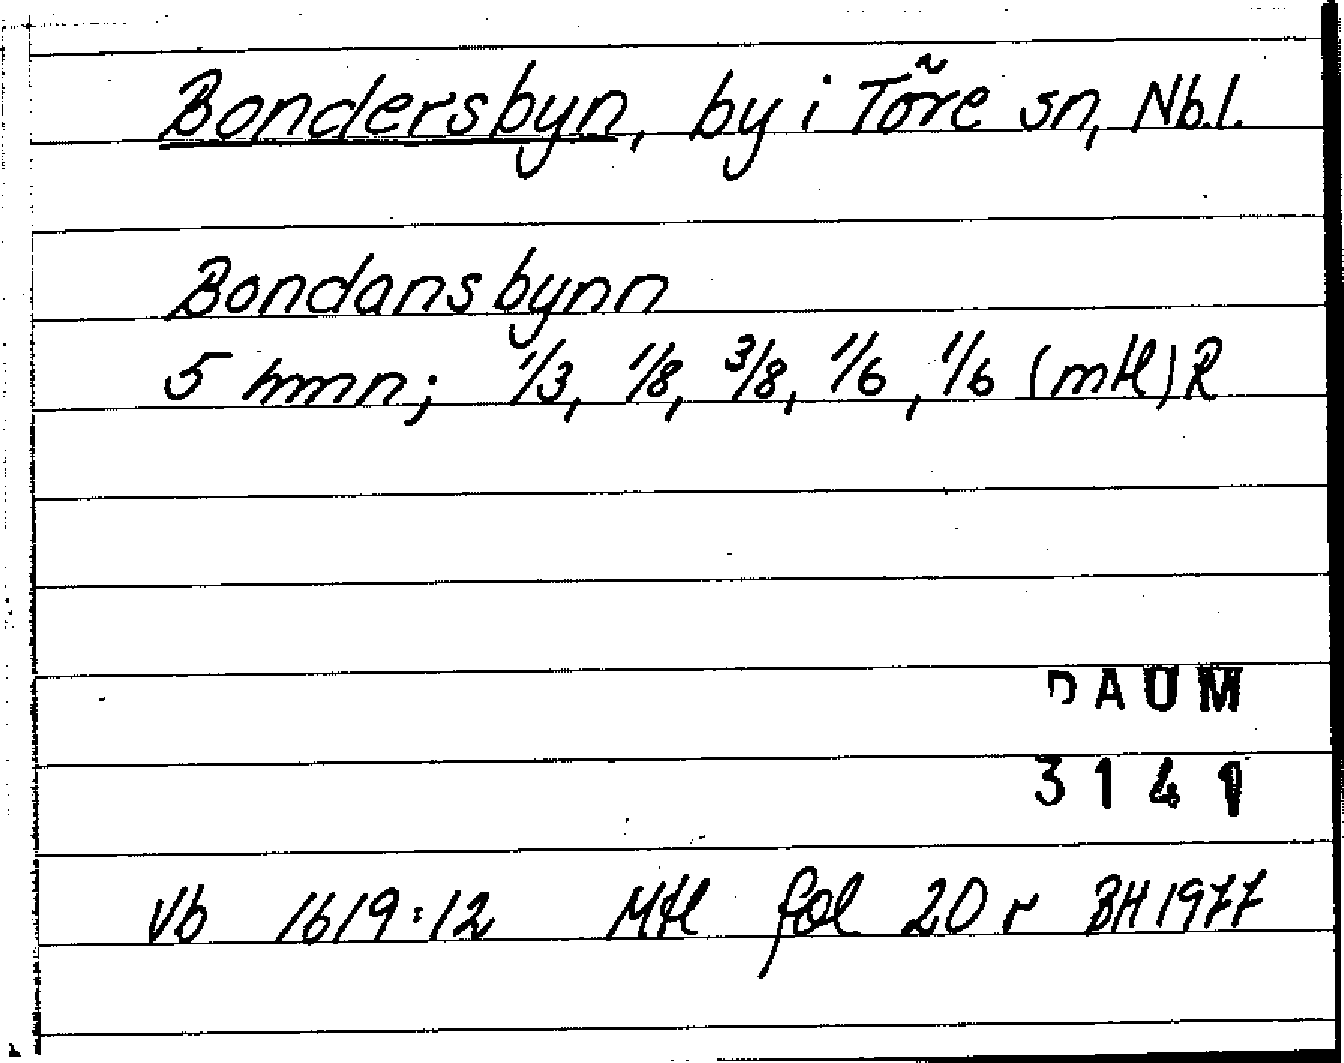 Bondersbyn, by i Töre sn, Nb.l.
Bondansbynn
5 hmn; 1/3, 1/8, 3/8, 1/6, 1/6 (mtl) R
DAUM
3141
Vb 1619:12 Mtl fol 20 r BH 1977